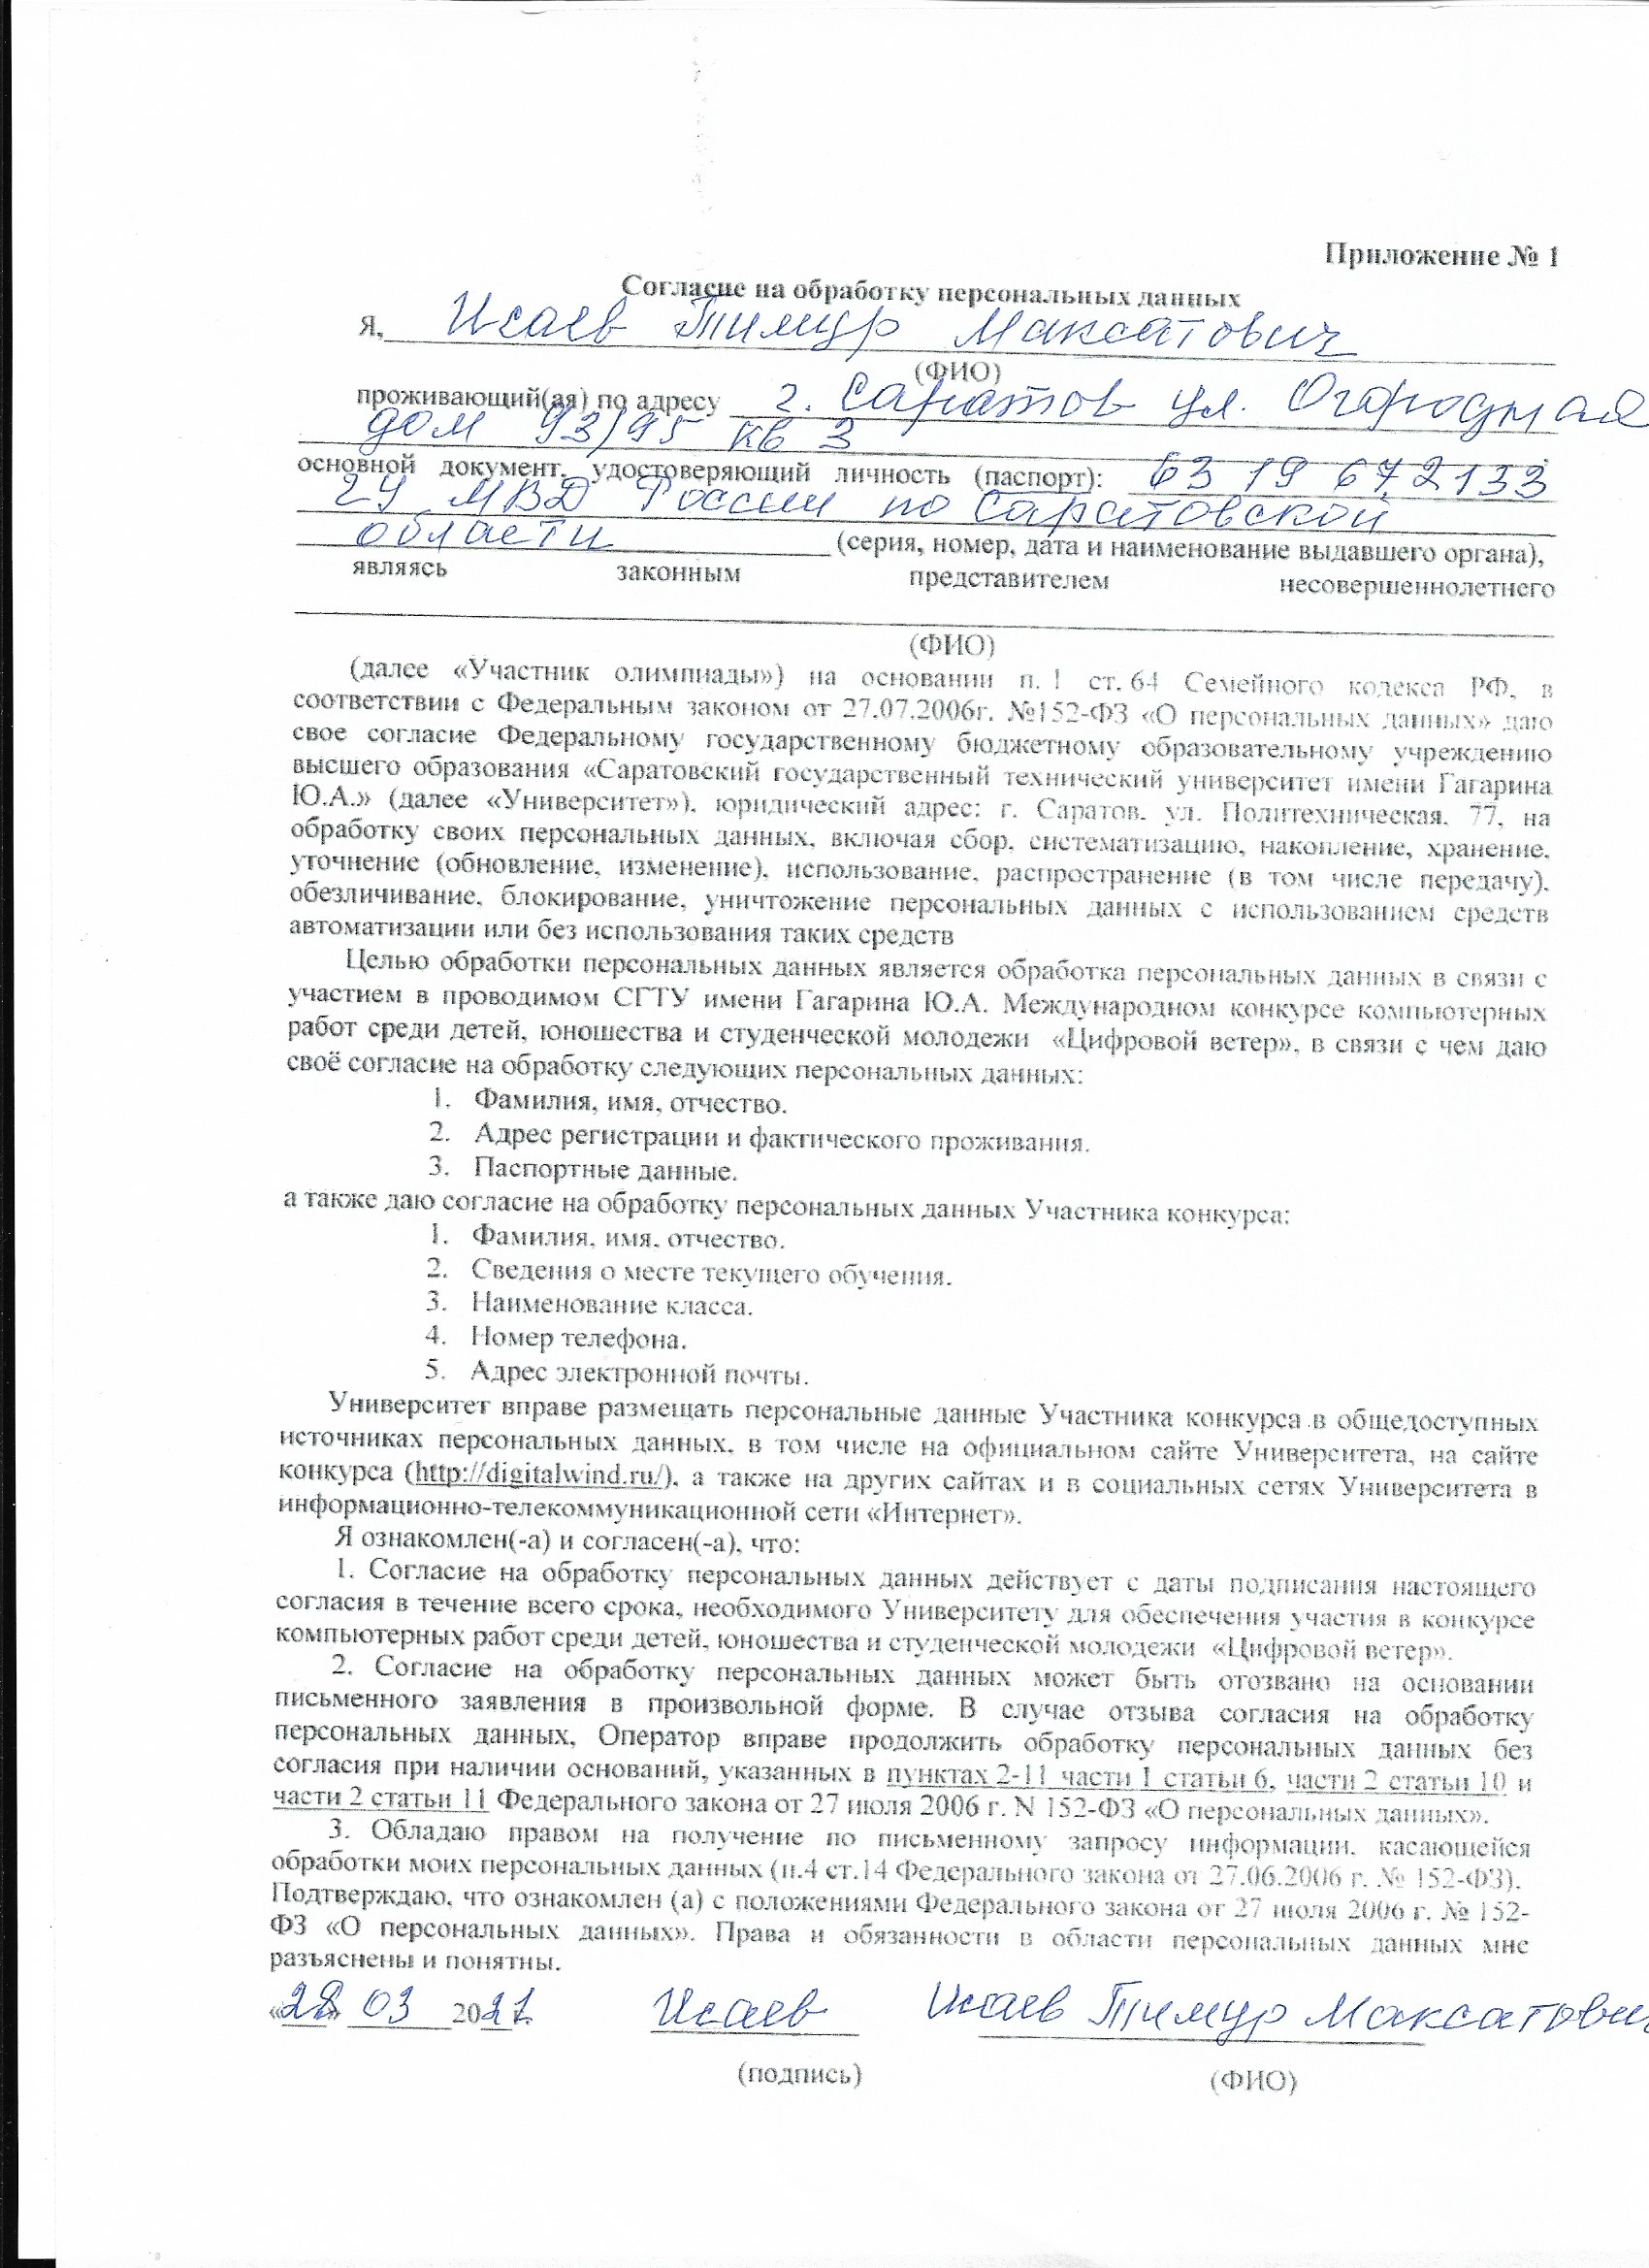 Приложение № 1
Согласие на обработку персональных данных
Я, Исаев Тимур Максатович
(ФИО)
проживающий(ая) по адресу г. Саратов ул. Огородная
дом 93/95 кв 3
основной документ, удостоверяющий личность (паспорт): 63 19 672133
ГУ МВД России по Саратовской
области (серия, номер, дата и наименование выдавшего органа),
являясь законным представителем несовершеннолетнего
(ФИО)
(далее «Участник олимпиады») на основании п. 1 ст. 64 Семейного кодекса РФ, в
соответствии с Федеральным законом от 27.07.2006г. №152-ФЗ «О персональных данных» даю
свое согласие Федеральному государственному бюджетному образовательному учреждению
высшего образования «Саратовский государственный технический университет имени Гагарина
Ю.А.» (далее «Университет»), юридический адрес: г. Саратов, ул. Политехническая, 77, на
обработку своих персональных данных, включая сбор, систематизацию, накопление, хранение,
уточнение (обновление, изменение), использование, распространение (в том числе передачу),
обезличивание, блокирование, уничтожение персональных данных с использованием средств
автоматизации или без использования таких средств
Целью обработки персональных данных является обработка персональных данных в связи с
участием в проводимом СГТУ имени Гагарина Ю.А. Международном конкурсе компьютерных
работ среди детей, юношества и студенческой молодежи «Цифровой ветер», в связи с чем даю
своё согласие на обработку следующих персональных данных:
1. Фамилия, имя, отчество.
2. Адрес регистрации и фактического проживания.
3. Паспортные данные.
а также даю согласие на обработку персональных данных Участника конкурса:
1. Фамилия, имя, отчество.
2. Сведения о месте текущего обучения.
3. Наименование класса.
4. Номер телефона.
5. Адрес электронной почты.
Университет вправе размещать персональные данные Участника конкурса в общедоступных
источниках персональных данных, в том числе на официальном сайте Университета, на сайте
конкурса (http://digitalwind.ru/), а также на других сайтах и в социальных сетях Университета в
информационно-телекоммуникационной сети «Интернет».
Я ознакомлен(-а) и согласен(-а), что:
1. Согласие на обработку персональных данных действует с даты подписания настоящего
согласия в течение всего срока, необходимого Университету для обеспечения участия в конкурсе
компьютерных работ среди детей, юношества и студенческой молодежи «Цифровой ветер».
2. Согласие на обработку персональных данных может быть отозвано на основании
письменного заявления в произвольной форме. В случае отзыва согласия на обработку
персональных данных, Оператор вправе продолжить обработку персональных данных без
согласия при наличии оснований, указанных в пунктах 2-11 части 1 статьи 6, части 2 статьи 10 и
части 2 статьи 11 Федерального закона от 27 июля 2006 г. N 152-ФЗ «О персональных данных».
3. Обладаю правом на получение по письменному запросу информации, касающейся
обработки моих персональных данных (п.4 ст.14 Федерального закона от 27.06.2006 г. № 152-ФЗ).
Подтверждаю, что ознакомлен (а) с положениями Федерального закона от 27 июля 2006 г. № 152-
ФЗ «О персональных данных». Права и обязанности в области персональных данных мне
разъяснены и понятны.
«28» 03 2021 Исаев Исаев Тимур Максатович
(подпись) (ФИО)